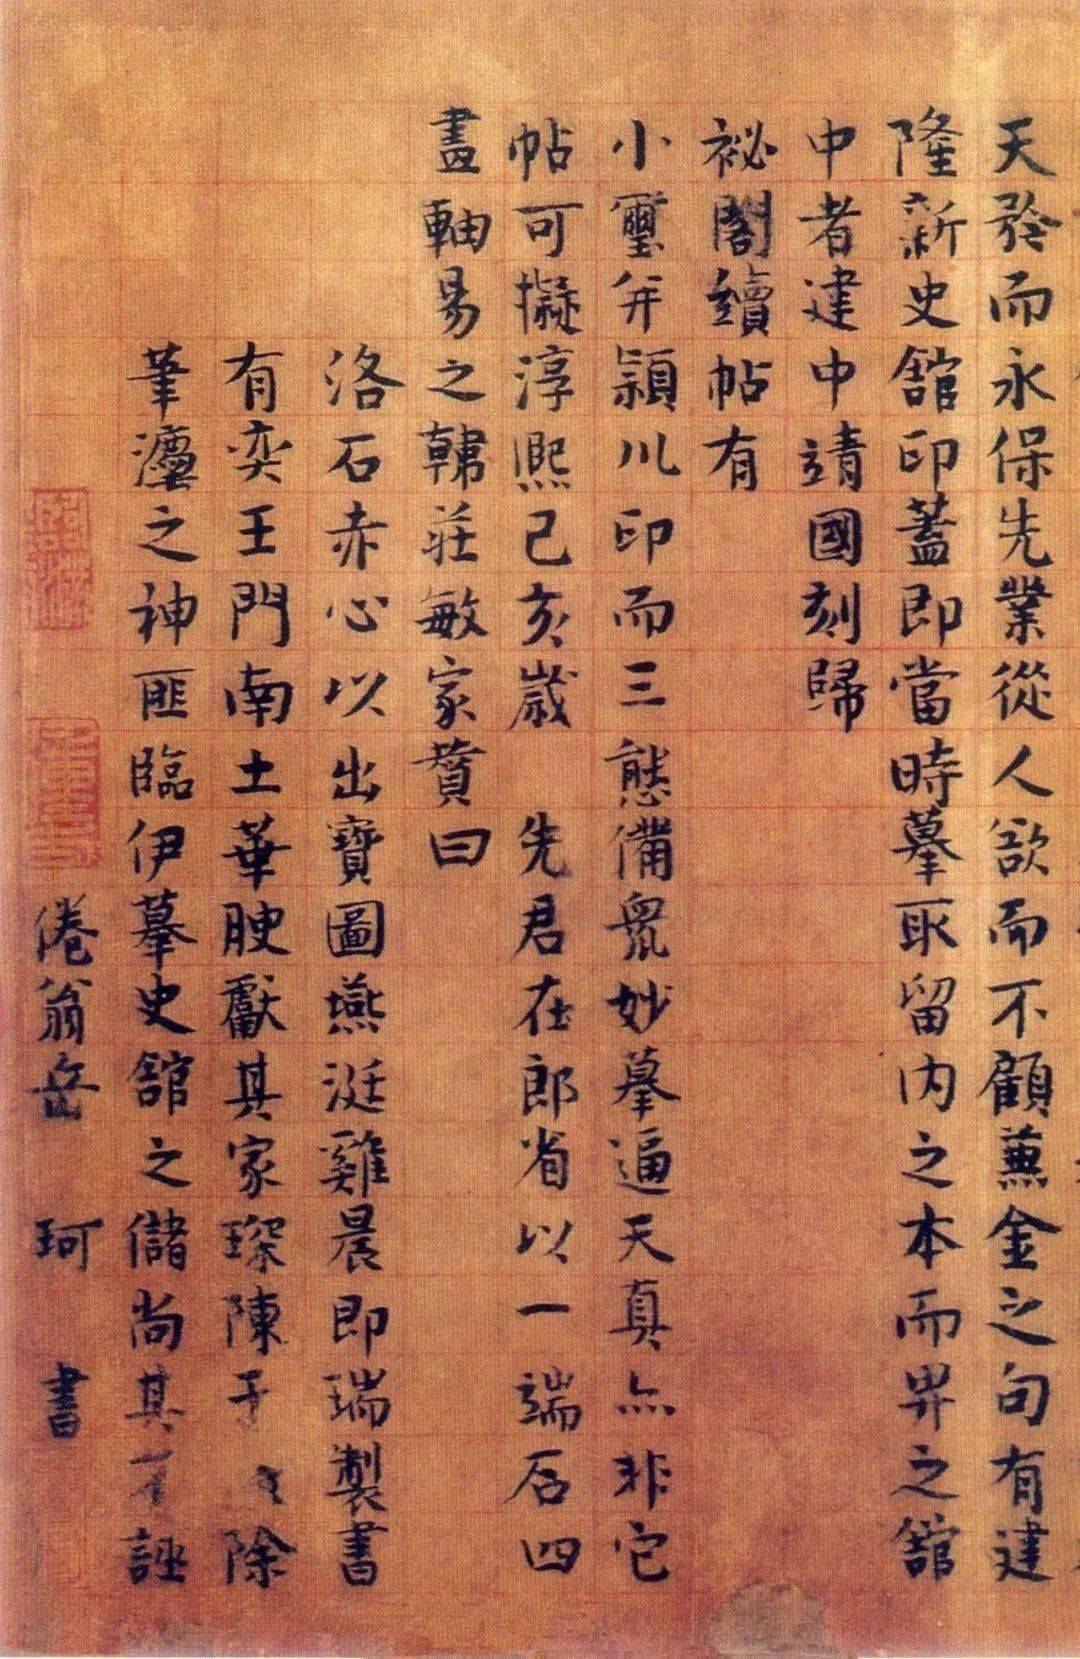 天發而永保先業從人欲而不顧兼金之句有建
隆新史館印蓋即當時摹取留內之本而畀之館
中者建中靖國刻歸
祕閣續帖有
小璽并潁川印而三態備眾妙摹逼天真亦非它
帖可擬淳熙己亥歲 先君在郎省以一端石四
畫軸易之韓莊敏家贊曰
洛石赤心以出寶圖燕涎雞晨即瑞製書
有奕王門南土華腴獻其家琛陳于 除
筆瀍之神匪臨伊摹史館之儲尚其 誣
倦翁岳 珂 書